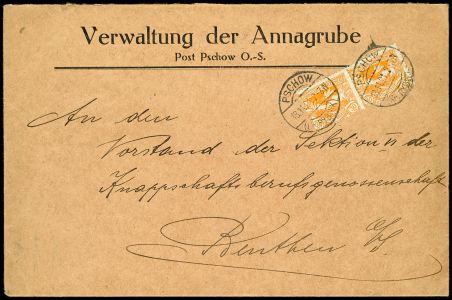 Verwaltung der Annagrube
Post Pschow O.-S.
PSCHOW
PSCHOW
An den
Vorstand der Sektion VI der
Knappschaftsberufsgenossenschaft
Beuthen O/S